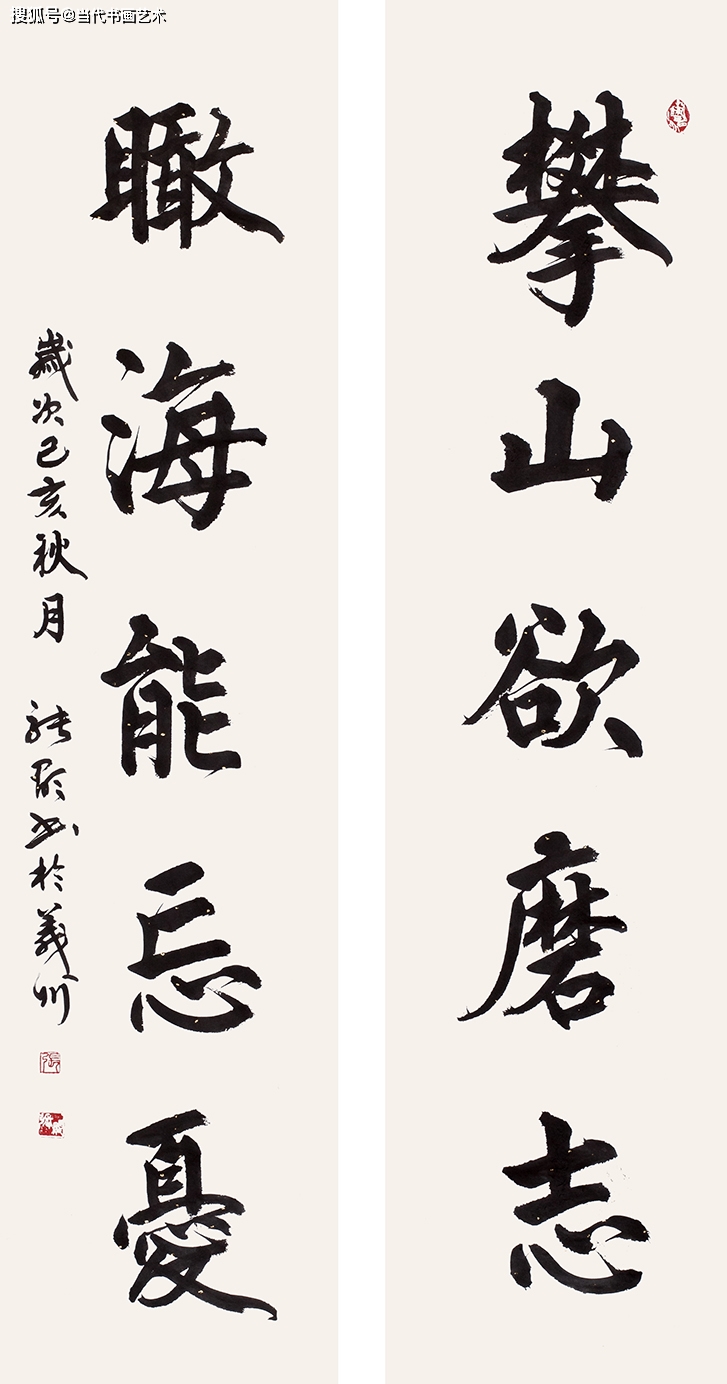 搜狐号@当代书画艺术
攀山欲磨志
瞰海能忘憂
歲次己亥秋月 張
書於義州
張